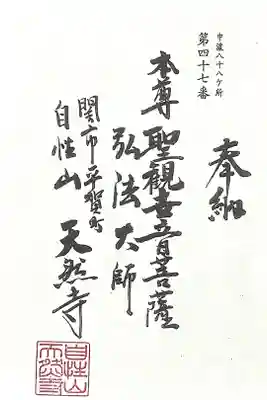 奉納
中濃八十八ケ所
第四十七番
本尊聖観世音菩薩
弘法大師
関市平賀町
自性山 天然寺
自性山
天然寺